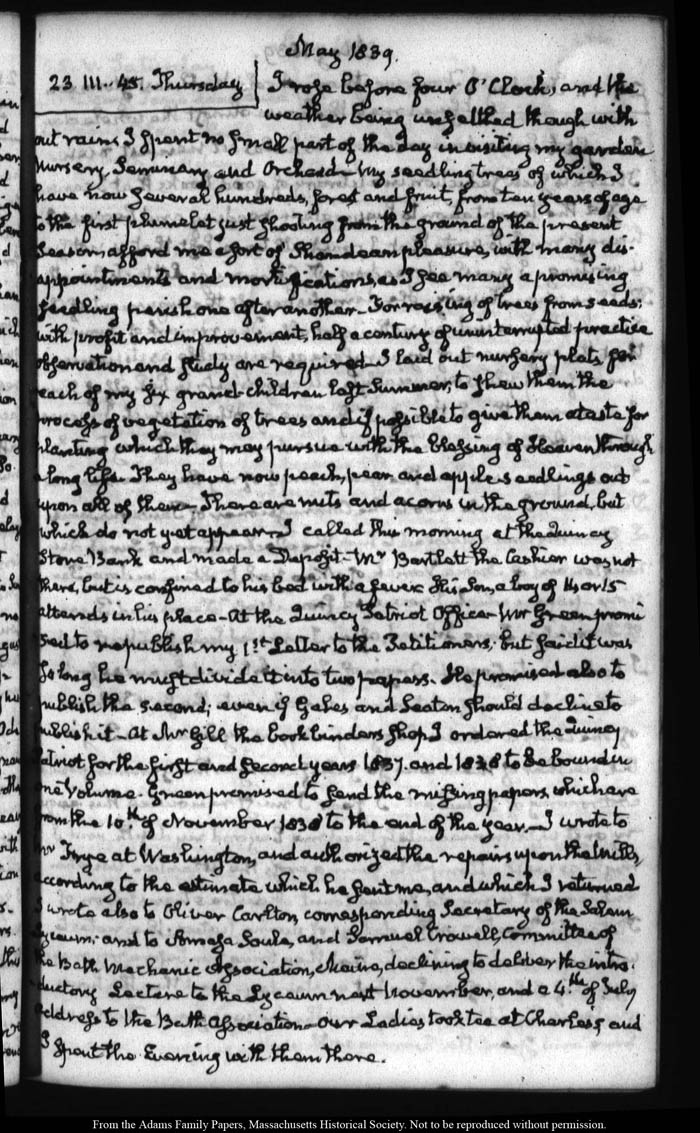 May 1839.
23 III..45. Thursday
I rose before four O'Clock, and the
weather being unsettled though with
out rain, I spent no small part of the day in visiting my garden
Nursery, Seminary and Orchard. My seedling trees of which I
have now several hundreds, forest and fruit, from ten years of age
to the first plumelet just shooting from the ground of the present
Season, afford me a sort of pleasure, with many dis-
appointments and mortifications, as I see many a promising
seedling perish one after another. For raising of trees from seeds;
with profit and improvement, half a century of uninterrupted practice
observation and study are required. I laid out nursery plats for
each of my six grand-children last Summer, to shew them the
process of vegetation of trees and if possible to give them a taste for
planting which they may pursue with the blessing of Heaven through
a long life. They have now peach, pear, and apple seedlings out
upon all of them. There are nuts and acorns in the ground, but
which do not yet appear. I called this morning at the Quincy
Stone Bank and made a Deposit. Mr Bartlett the Cashier was not
there, but is confined to his bed with a fever. His Son, a boy of 14 or 15
attends in his place. At the Quincy Patriot Office Mr Green promi
sed to republish my 1st Letter to the Petitioners; but said it was
so long he must divide it into two papers. He promised also to
publish the second; even if Gales and Seaton should decline to
publish it. At Mr Gill the bookbinders shop, I ordered the Quincy
Patriot for the first and second years 1837. and 1838 to be bound in
one Volume. Green promised to send the missing papers, which are
from the 10th of November 1838 to the end of the year. I wrote to
Mr Frye at Washington, and authorized the repairs upon the Mills,
according to the estimate which he sent me, and which I returned
I wrote also to Oliver Carlton, corresponding Secretary of the Salem
Lyceum; and to Amasa Soule, and Samuel Crowell, Committee of
the Bath Mechanic Association, Maine, declining to deliver the intro-
ductory Lecture to the Lyceum next November, and a 4th of July
Address to the Bath Association. Our Ladies took tea at Charles's and
I spent the Evening with them there.
From the Adams Family Papers, Massachusetts Historical Society. Not to be reproduced without permission.